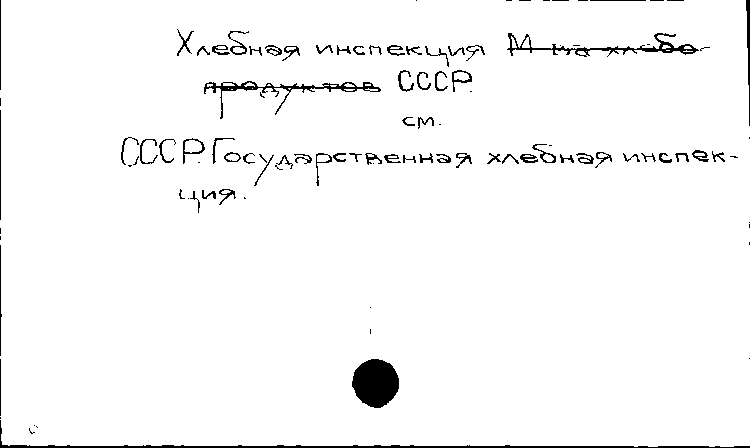 Хлебная инспекция М-ва хлебо-
продуктов СССР.
см.
СССР. Государственная хлебная инспек-
ция.